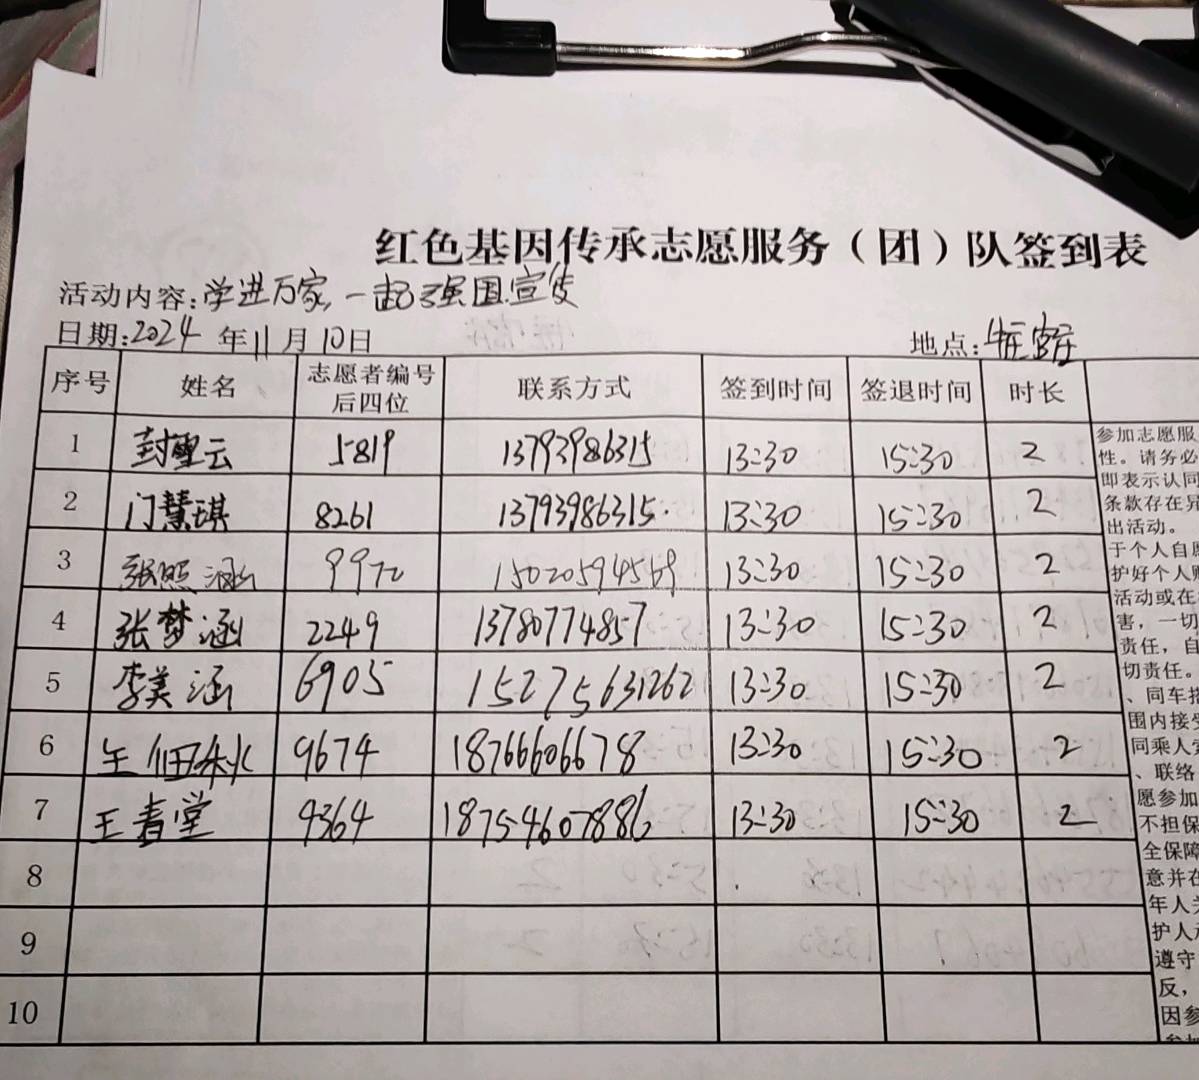 红色基因传承志愿服务（团）队签到表
活动内容:学进万家,一起强国宣传
日期:2024年11月10日 地点:
序号 姓名 志愿者编号后四位 联系方式 签到时间 签退时间 时长
1 封 云 5819 13793986315 13:30 15:30 2
2 门慧琪 8261 13793986315. 13:30 15:30 2
3 张照涵 9972 15020594569 13:30 15:30 2
4 张梦涵 2249 13780774857 13:30 15:30 2
5 李美涵 6905 15275631262 13:30 15:30 2
6 王 9674 18766606678 13:30 15:30 2
7 王春堂 4364 18754607886 13:30 15:30 2
8
9
10
参加志愿服
性。请务必
即表示认同
条款存在异
出活动。
于个人自愿
护好个人财
活动或在
害，一切
责任，自
切责任。
、同车搭
围内接受
同乘人
、联络
愿参加
不担保
全保障
意并在
年人
护人
遵守
反，
因参